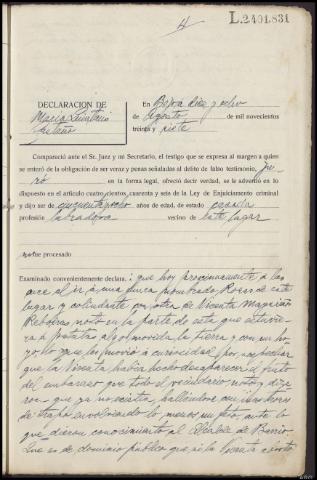 4
L.2491.831
DECLARACION DE
María Quintano
En Beja diez y ocho
de Agosto de mil novecientos
treinta y siete
Compareció ante el Sr. Juez y mi Secretario, el testigo que se expresa al margen a quien
se enteró de la obligación de ser veraz y penas señaladas al delito de falso testimonio, ju-
ró en la forma legal, ofreció decir verdad, se le advertió en lo
dispuesto en el artículo cuatro cientos, cuarenta y seis de la Ley de Enjuiciamiento criminal
y dijo ser de cincuenta y ocho años de edad, de estado casada
profesión labradora vecino de este lugar
fue procesado
Examinado convenientemente declara: que hoy proximamente a las
once al ir a una finca nombrada de este
lugar y colindante con otra de Vicenta
notó en la parte de esta que estuvie-
ra a patatas algo movida la tierra y con un ho-
yo lo que la movió a curiosidad por sospechar
que la Vicenta había hecho desaparecer el fruto
del embarazo que todo el vecindario notó y dije-
ron que ya no existía, hallándose con unas horas
de trapo envolviendo lo menos un feto, ante lo
que dieron conocimiento al Alcalde de Barrio.
Que es de dominio público que a la Vicenta